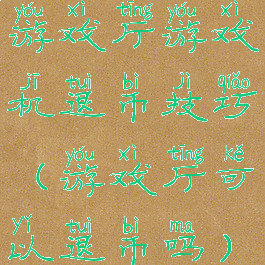 yóu xì tīng yóu xì
游戏厅游戏
jī tuì bì jì qiǎo
机退币技巧
yóu xì tīng kě
(游戏厅可
yǐ tuì bì ma
以退币吗)